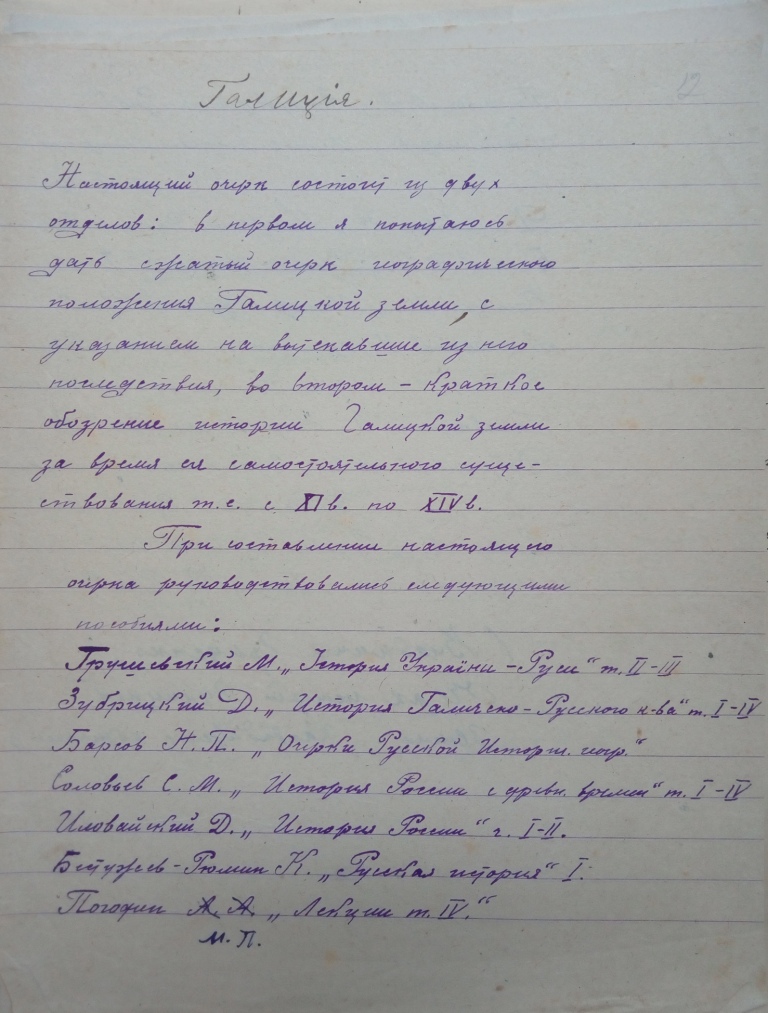 Галиція.
12
Настоящий очерк состоит из двух
отделов: в первом я попытаюсь
дать сжатый очерк географического
положения Галицкой земли, с
указанием на вытекавшие из него
последствия, во втором – краткое
обозрение истории Галицкой земли
за время ея самостоятельного суще-
ствования т.е. с XI в. по XIV в.
При составлении настоящего
очерка руководствовались следующими
пособиями:
Грушевський М. „Історія України – Руси" т. II–III
Зубрицкий Д. „История Галическо-Русского к-ва" т. I–IV
Барсов Н. П. „Очерки Русской Историч. геогр."
Соловьев С. М. „История России с древн. времен" т. I–IV
Иловайский Д. „История России" ч. I–II.
Бестужев-Рюмин К. „Русская история" I.
Погодин А. А. „Лекции т. IV."
М. П.